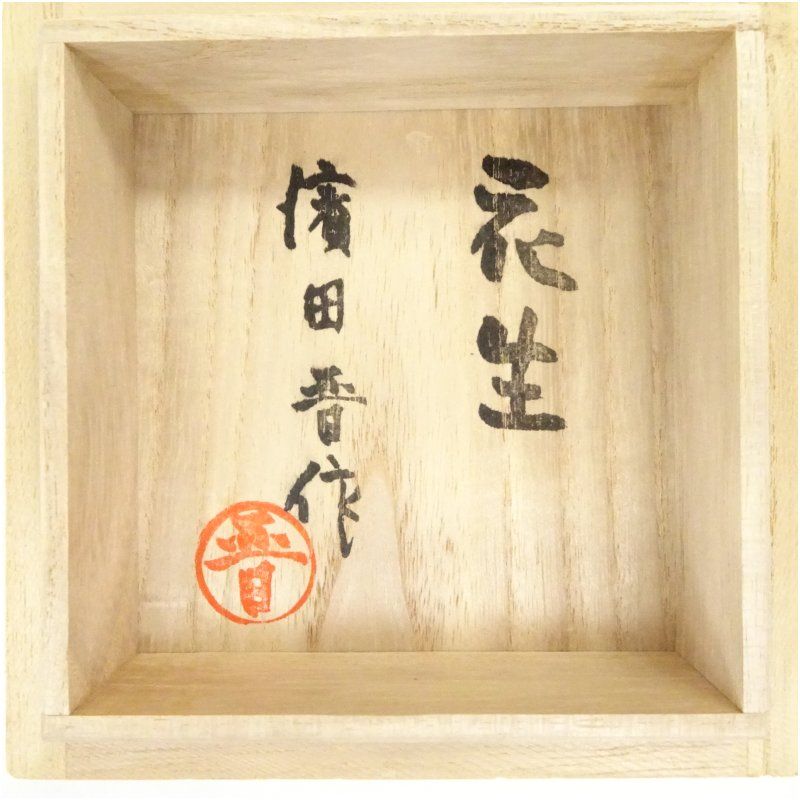 花生
濱田晋作
晋